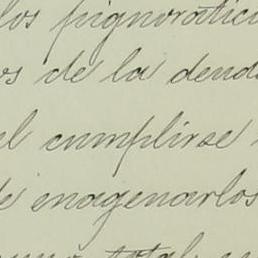 los pignoratici
os de la deuda
el cumplirse
de enagenarlos
total